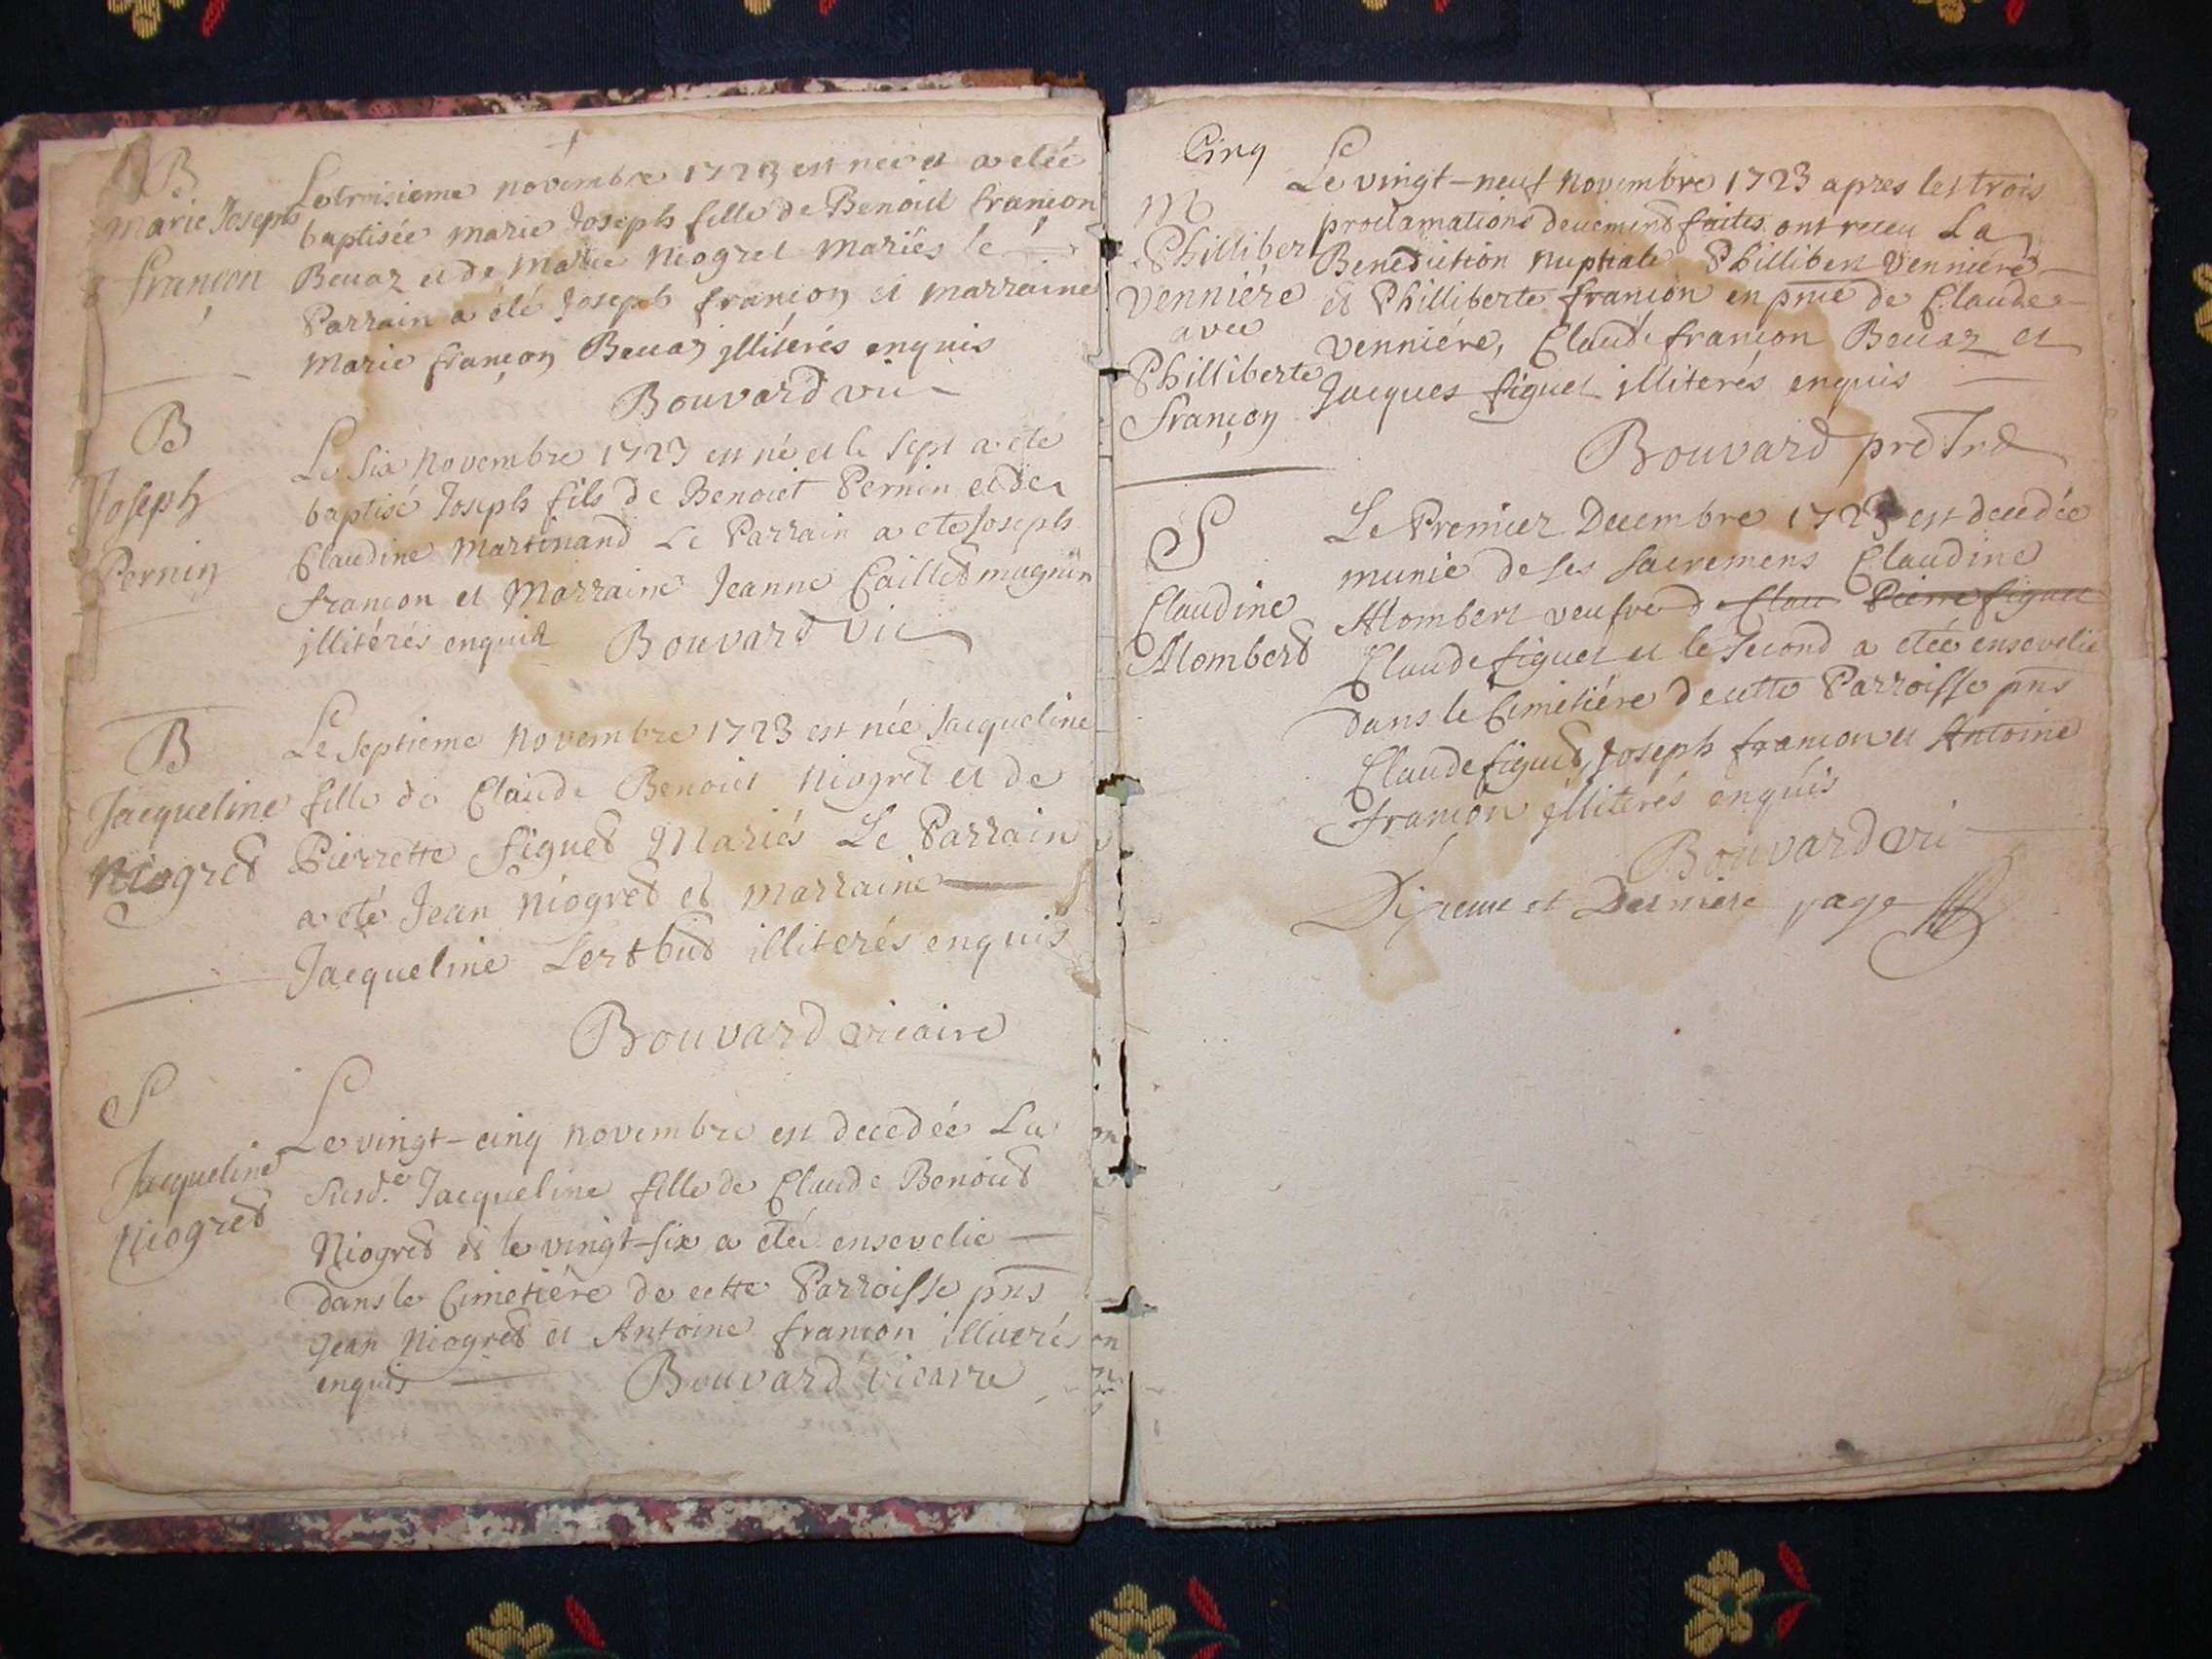 B
Marie Joseph
françon
Le troisieme novembre 1723 est née et a etée
baptisée marie Joseph fille de Benoist françon
Beuaz et de marie Niogret mariés le
Parrain a été Joseph françon et marraine
marie françon Beuaz illitérés enquis
Bouvard vic
B
Joseph
Pernin
Le Six Novembre 1723 est né et le sept a eté
baptisé Joseph fils de Benoiet Pernin et de
Claudine Martinand Le Parrain a ete Joseph
françon et Marraine Jeanne Caillet mugnin
illitérés enquis Bouvard Vic
B
Jacqueline
Niogret
Le Septieme Novembre 1723 est née Jacqueline
fille de Claude Benoist Niogret et de
Pierrette figuet Mariés Le Parrain
a eté Jean Niogret et marraine
Jacqueline illiterés enquis
Bouvard vicaire
S
Jacqueline
Niogret
Le vingt-cinq novembre est decedée La
Susd.e Jacqueline fille de Claude Benoist
Niogret et le vingt-six a eteé ensevelie
dans le Cimetiére de cette Parroisse pns
Jean Niogret et Antoine françon illiterés
enquis Bouvard vicaire
Cinq
M
Philliber
Venniére
avec
Philliberte
françon
Le vingt-neuf Novembre 1723 apres les trois
proclamations deuement faites ont receu La
Benediction nuptiale Phillibert Venniére
et Philliberte françon en pnce de Claude
Venniére, Claude françon Beuaz et
Jacques figuet illiterés enquis
Bouvard prêtre
S
Claudine
Alombert
Le Premier Decembre 1723 est decedée
munie de ses sacremens Claudine
Alombert veufve d Clau Pierre figuet
Claude figuet et le second a etée ensevelie
dans le Cimetiére de cette Parroisse pns
Claude figuet, Joseph françon et Antoine
françon illitérés enquis
Bouvard vi
Dixieme et Derniere page